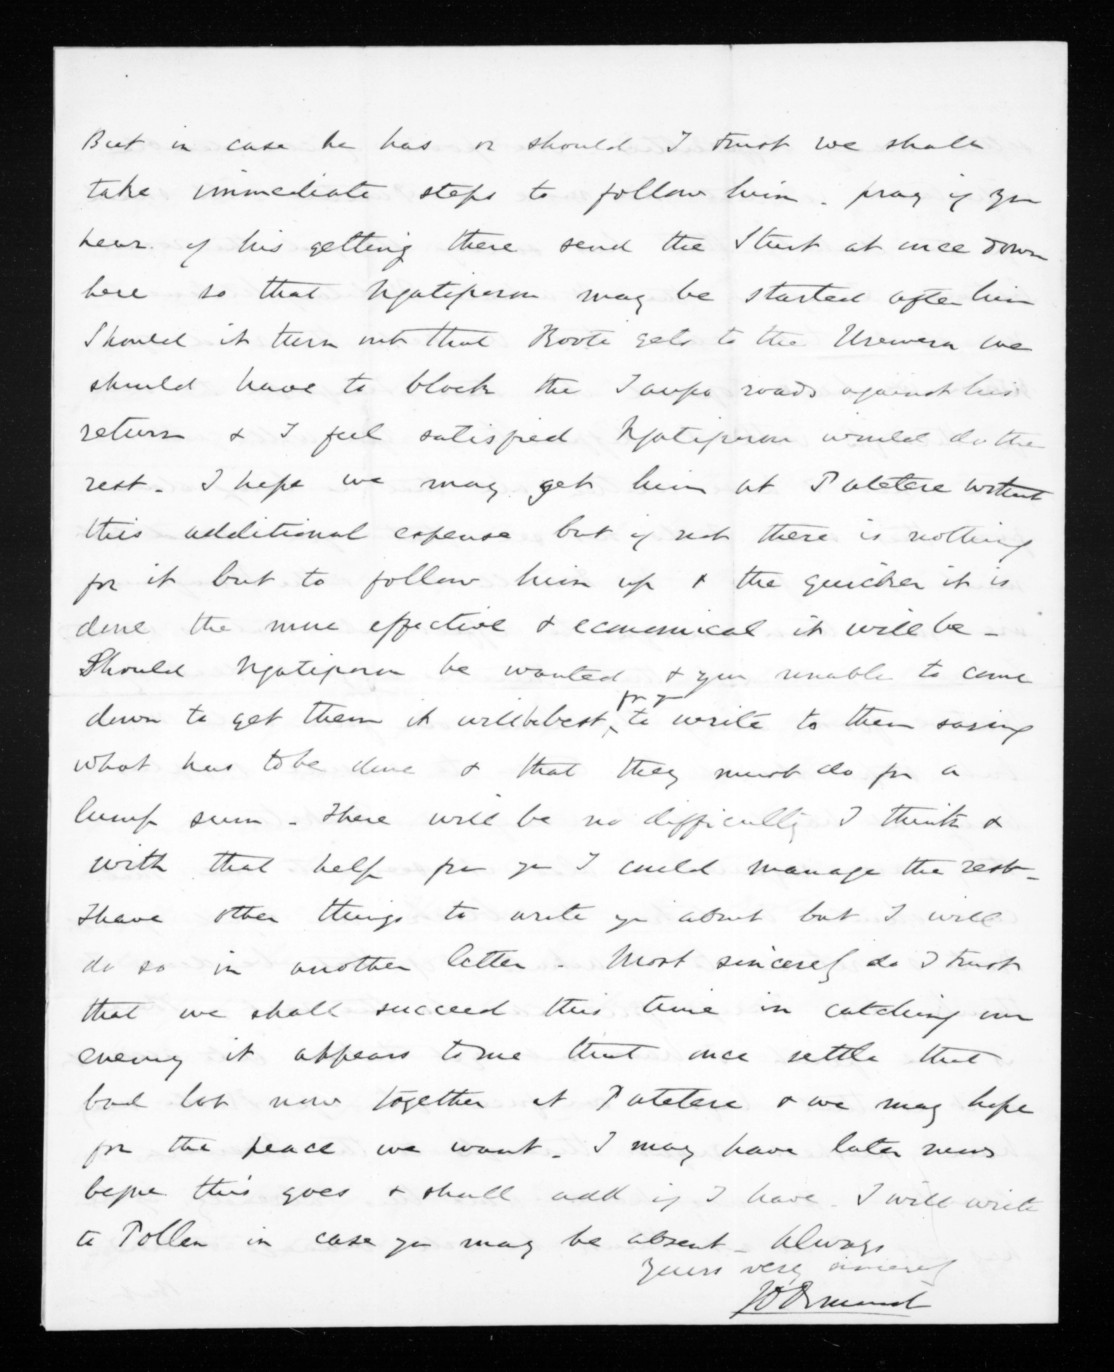 But in case he has or should I trust we shall
take immediate steps to follow him. pray if you
hear of his getting there send the Sturt at once down
here so that Ngatiporou may be started after him
Should it turn out that Kooti gets to the Urewera we
should have to block the Taupo roads against his
return & I feel satisfied Ngatiporou would do the
rest. I hope we may get him at Patetere without
this additional expense but if not there is nothing
for it but to follow him up & the quicker it is
done the more effective & economical it will be -
Should Ngatiporou be wanted & you unable to come
for you
down to get them it will be best to write to them saying
what has to be done & that they must do for a
lump sum - There will be no difficulty I think &
with that help from you I could manage the rest -
I have other things to write you about but I will
do so in another letter. Most sincerely do I trust
that we shall succeed this time in catching our
enemy it appears to me that once settle that
bad lot now together at Patetere & we may hope
for the peace we want. I may have later news
before this goes & shall add if I have. I will write
to Pollen in case you may be absent - Always
yours very sincerely
JD Ormond